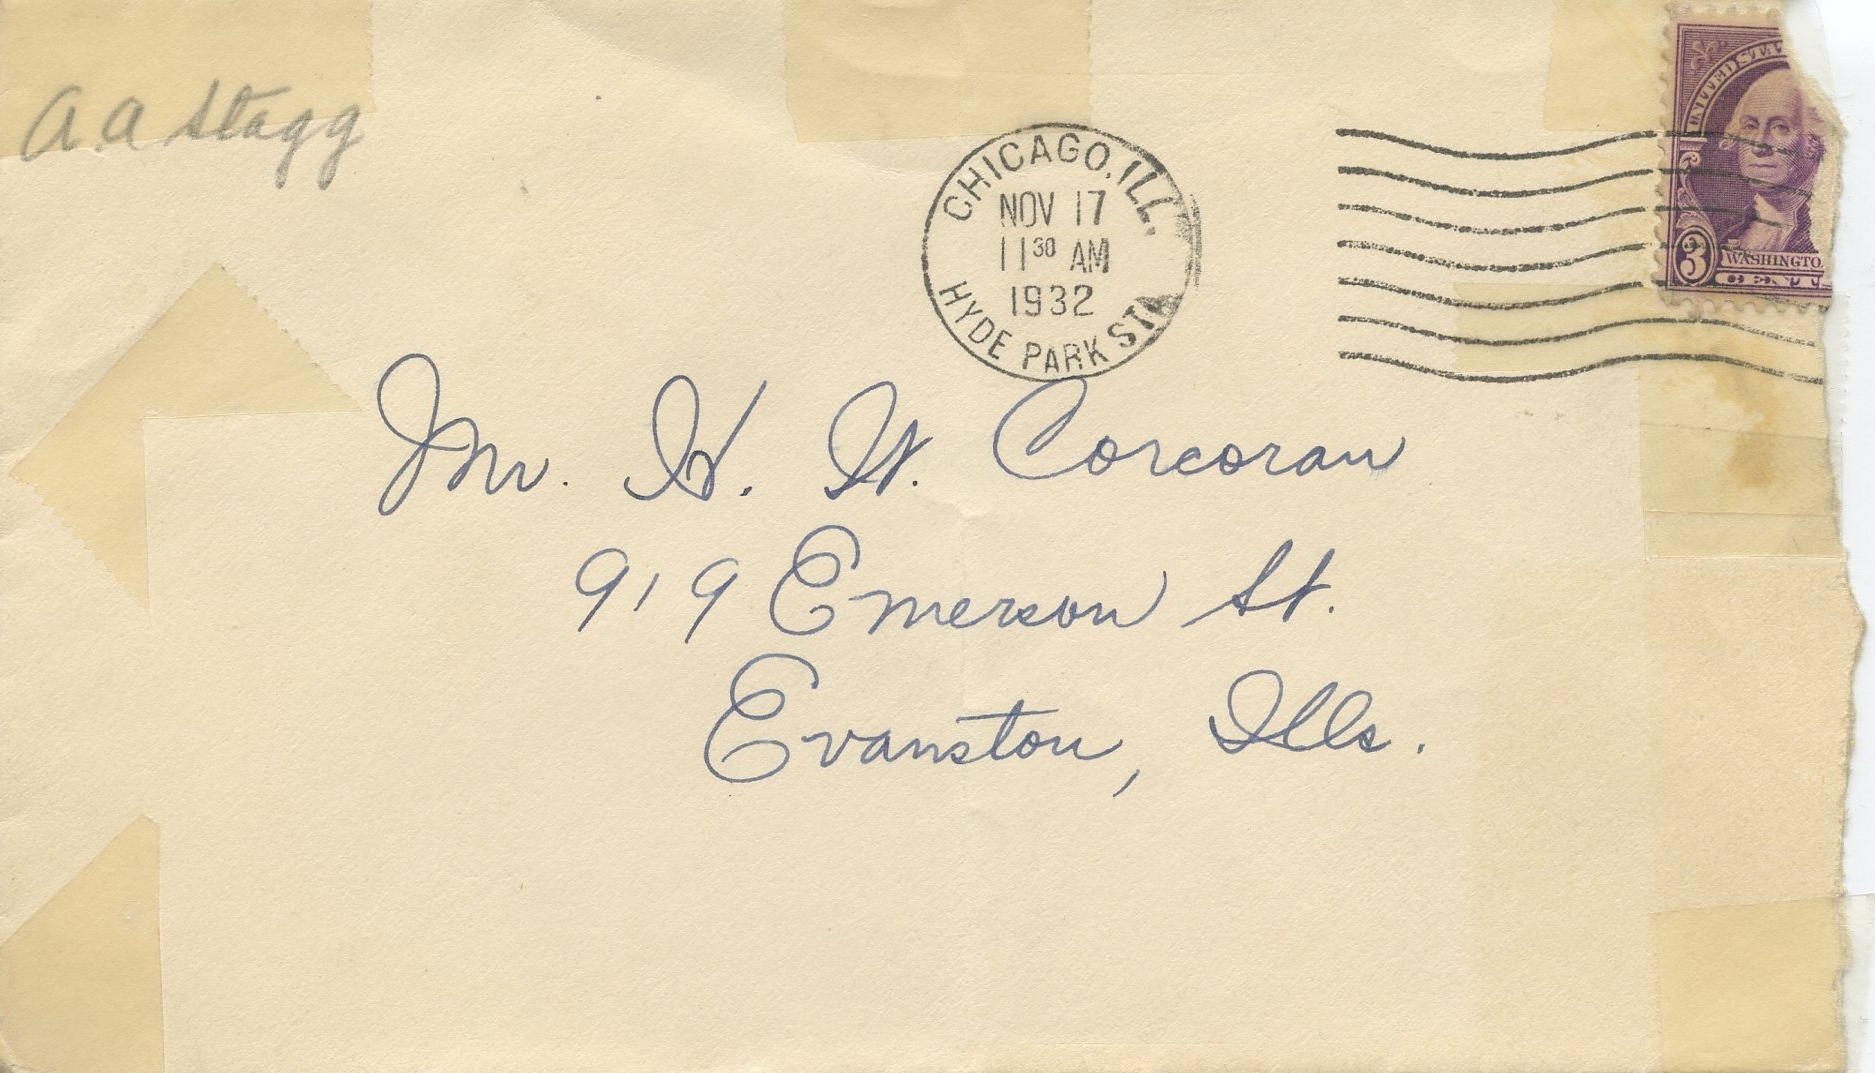 A. A. Stagg
CHICAGO, ILL.
NOV 17
11 30 AM
1932
HYDE PARK STA
UNITED STA
3
WASHINGTO
CENT
Mr. H. H. Corcoran
919 Emerson St.
Evanston, Ills.